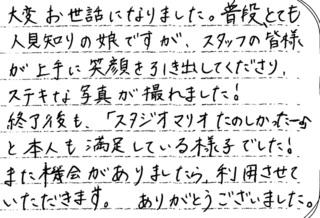 大変お世話になりました。普段とても
人見知りの娘ですが、スタッフの皆様
が上手に笑顔を引き出してくださり、
ステキな写真が撮れました！
終了後も、「スタジオマリオたのしかったー♪」
と本人も満足している様子でした！
また機会がありましたら、利用させて
いただきます。 ありがとうございました。